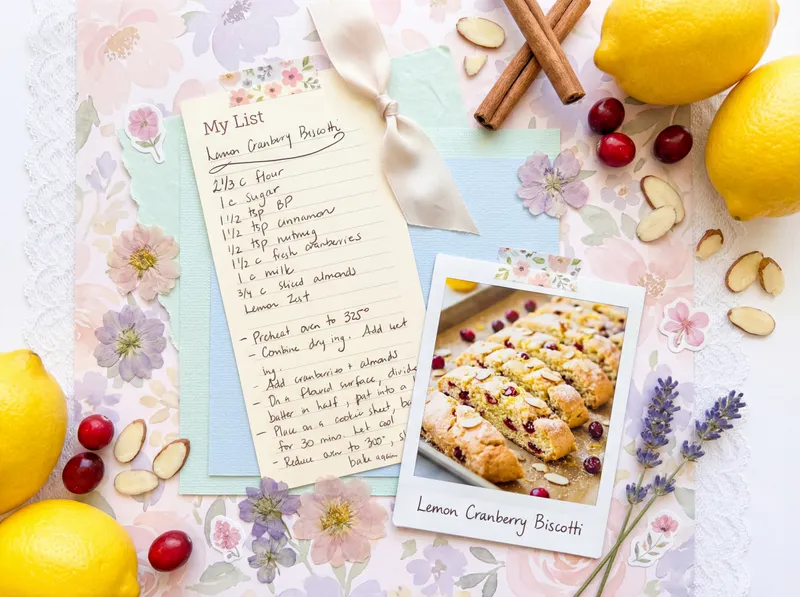 My List
Lemon Cranberry Biscotti
2 1/3 c flour
1 c sugar
1 1/2 tsp BP
1 1/2 tsp cinnamon
1/2 tsp nutmeg
1 1/2 c fresh cranberries
1 c milk
3/4 c sliced almonds
Lemon Zest
- Preheat oven to 325°
- Combine dry ing. Add wet
ing.
- Add cranberries + almonds
- On a floured surface, divide
batter in half, pat into a
- Place on a cookie sheet,
for 30 mins. Let cool
- Reduce oven to 300°,
bake again
Lemon Cranberry Biscotti